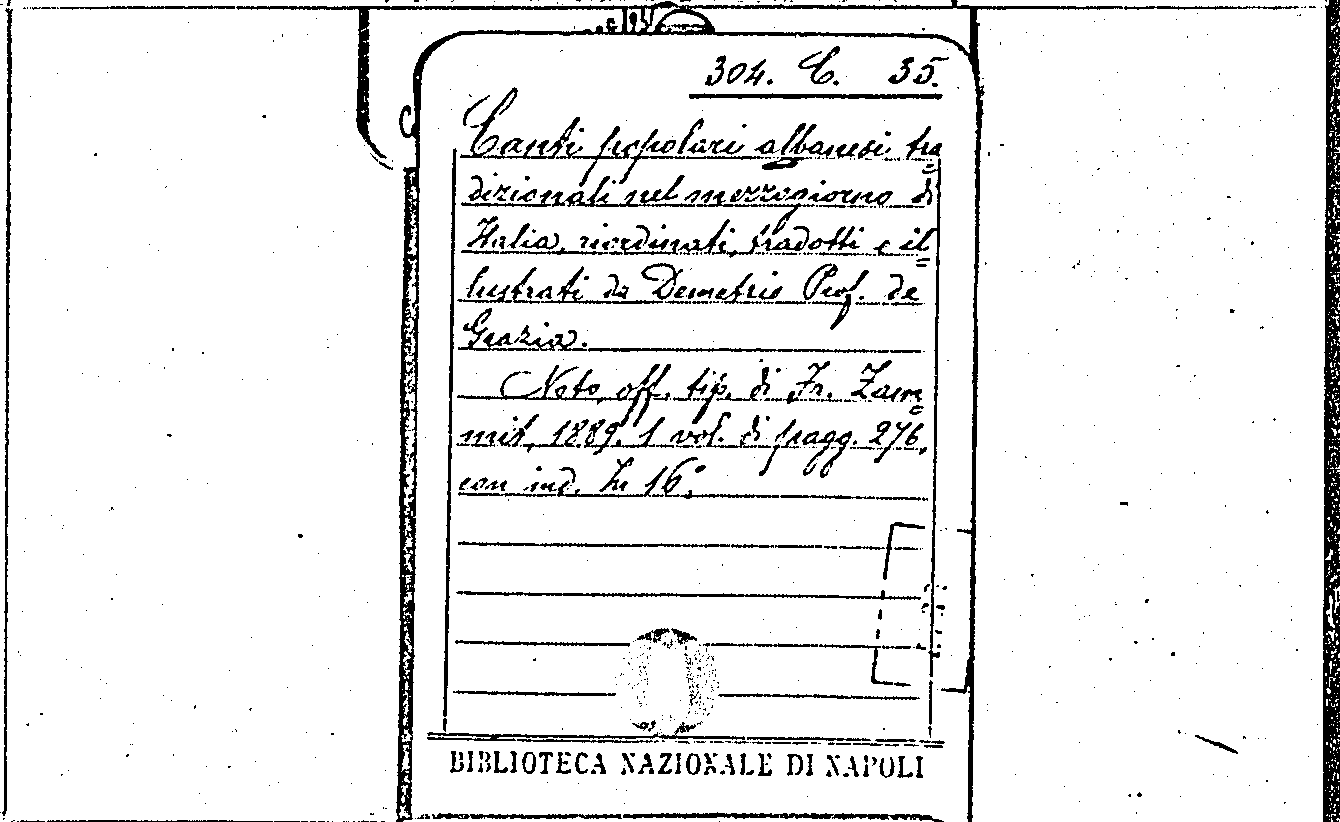 304. C. 35.
Canti popolari albanesi tra=
dizionali nel mezzogiorno d'
Italia, riordinati, tradotti e il=
lustrati da Demetrio Prof. de
Grazia.
Noto, off. tip. di Fr. Zam=
mit, 1889. 1 vol. di pagg. 276,
con ind. In 16°.
BIBLIOTECA NAZIONALE DI NAPOLI